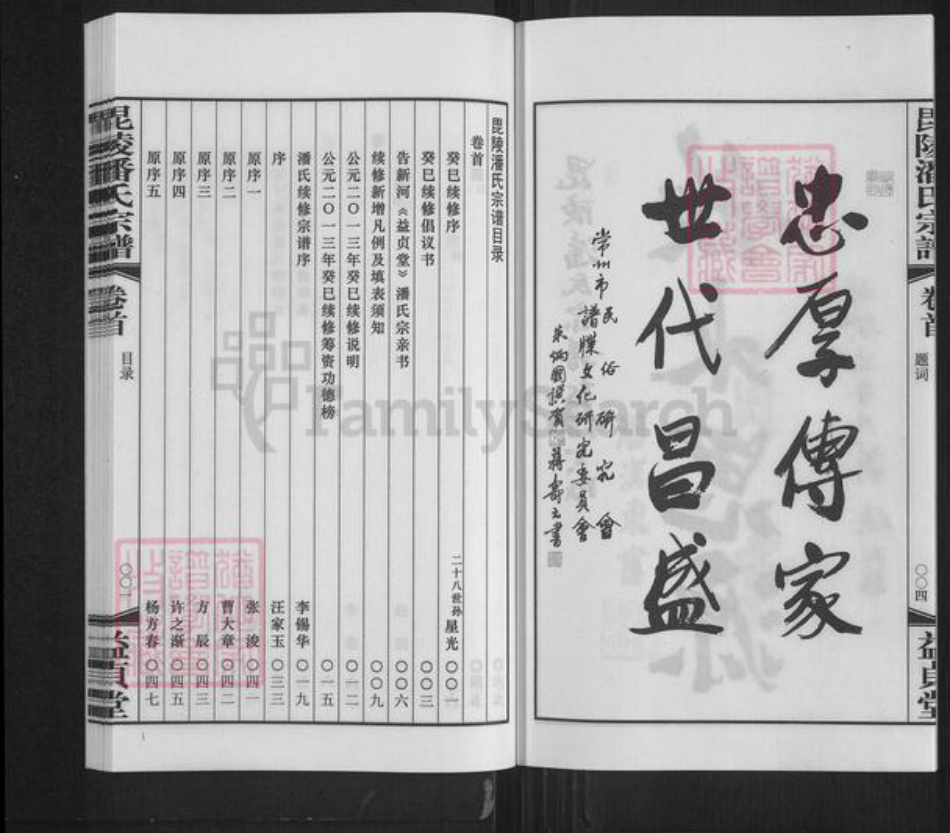 毘陵潘氏宗譜
卷首
题词
〇〇四
益貞堂
忠厚傳家
世代昌盛
常州市民俗研究會
譜牒文化研究委員會
毘陵潘氏宗谱目录
卷首
癸巳续修序 二十八世孙星光 〇〇一
癸巳续修倡议书 〇〇三
告新河《益贞堂》潘氏宗亲书 〇〇六
续修新增凡例及填表须知 〇〇九
公元二〇一三年癸巳续修说明 〇一二
公元二〇一三年癸巳续修筹资功德榜 〇一五
潘氏续修宗谱序 李锡华 〇一九
序 汪家玉 〇三三
原序一 张浚 〇四一
原序二 曹大章 〇四二
原序三 方辰 〇四三
原序四 许之渐 〇四五
原序五 杨方春 〇四七
毘陵潘氏宗譜
卷首
目录
〇〇一
益貞堂
FamilySearch